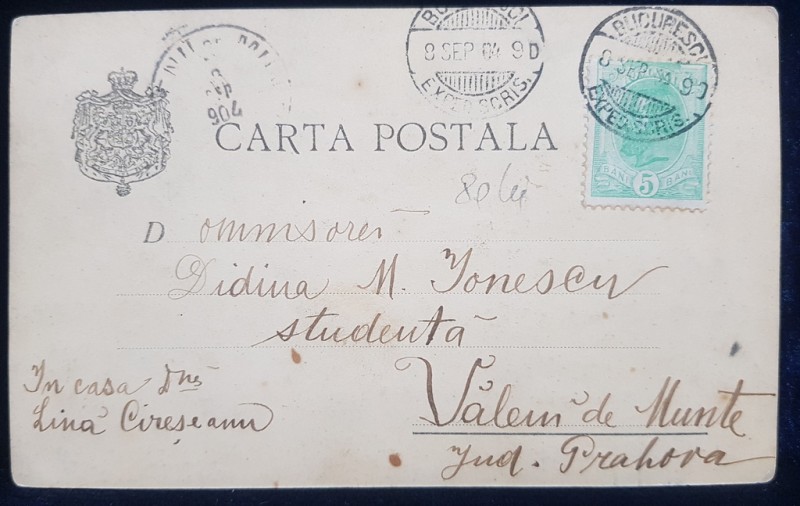 BUCURESCI
8 SEP 04 9 D
EXPED. SCRIS.
BUCURESCI
8 SEP 9 D
EXPED. SCRIS.
904
CARTA POSTALA
BANI 5 BANI
80 lei
Domnisorei
Didina M. Ionescu
studentă
In casa Dnei
Lina Cireșeanu
Văleni de Munte
Jud. Prahova